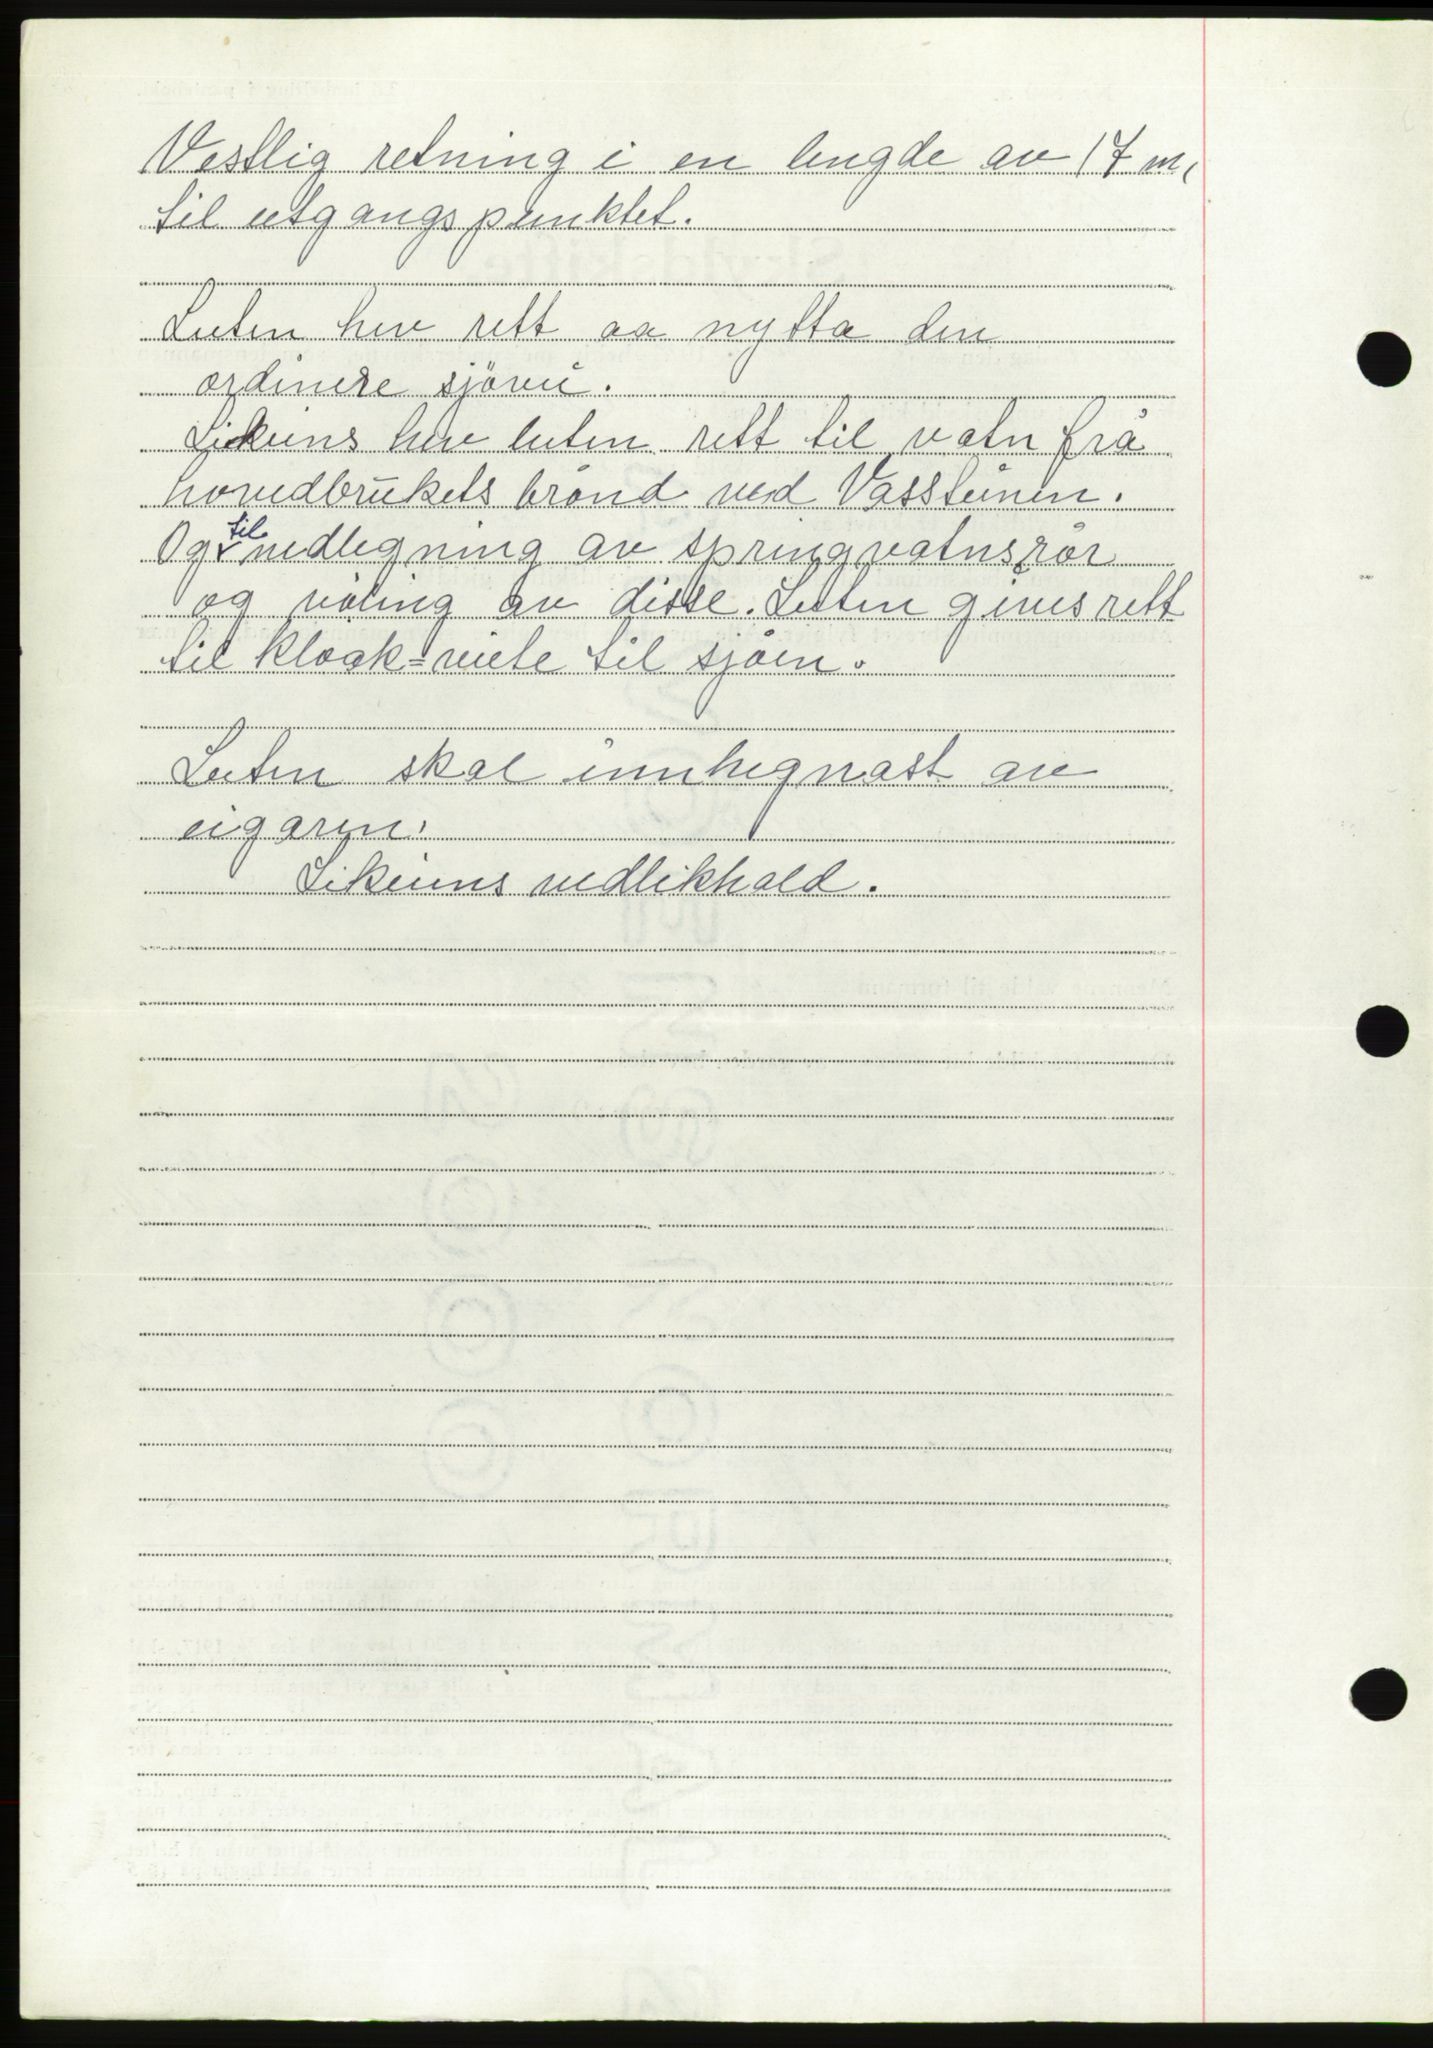 Vestlig retning i en lengde av 17 m,
til utgangspunktet.
Luten hev rett aa nytta den
ordinere sjövei.
Likeins hev luten rett til vatn frå
hovedbrukets brönd ved Vasstunen.
Og til nedlegning av springvatnsrör
og völing av disse. Luten gives rett
til kloak=veite til sjöen.
Luten skal innhegnast av
eigaren.
Likeins vedlikhald.